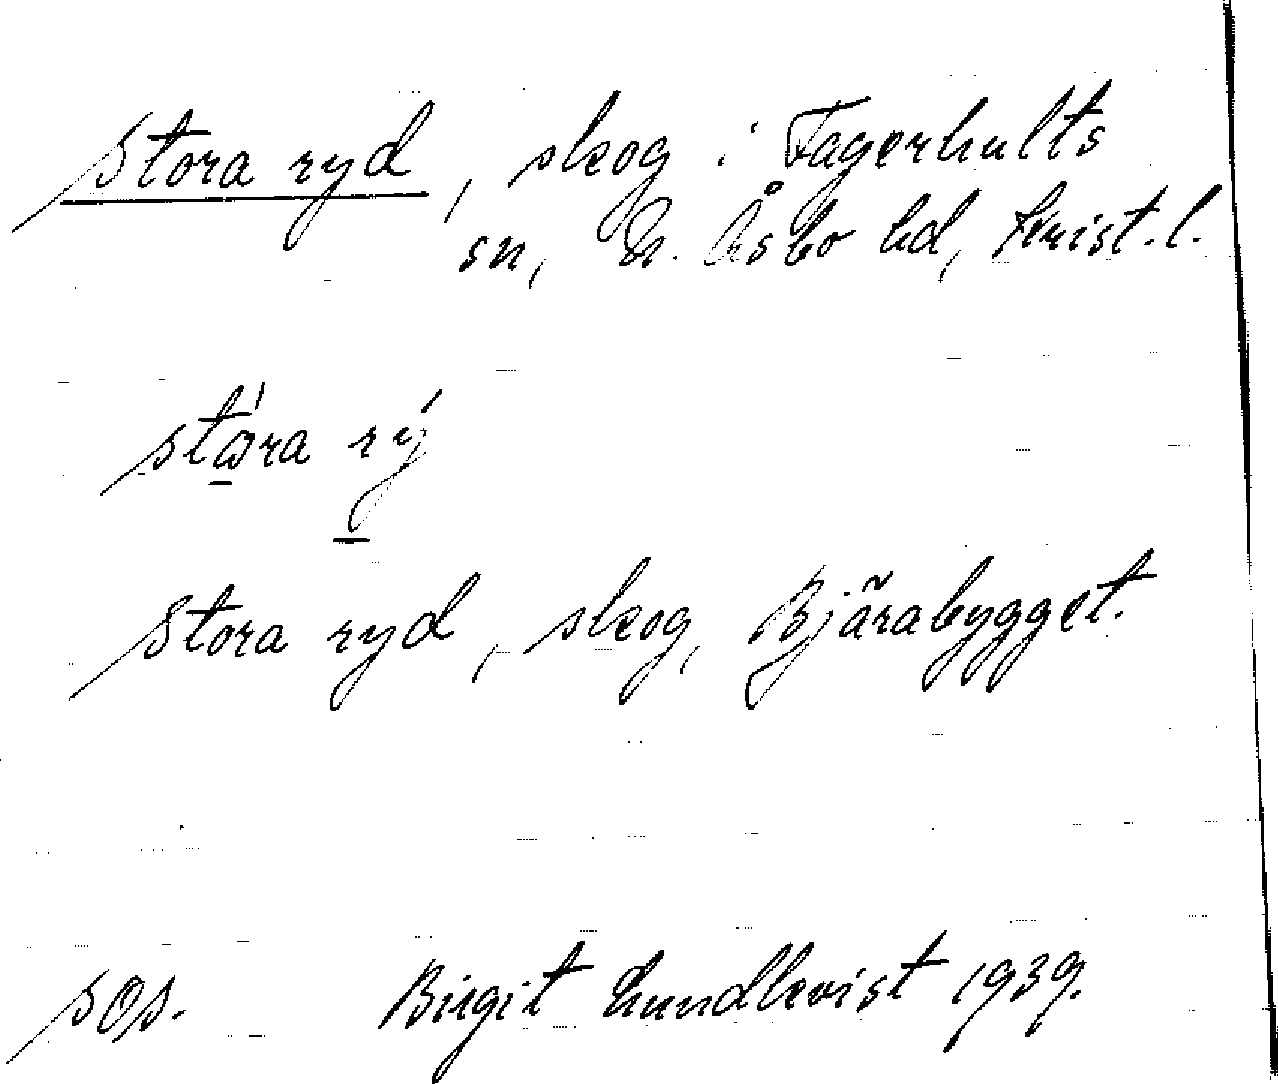 Stora ryd, skog i Fagerhults
sn, N. Åsbo hd, Krist. l.
stώ̠ra rý̠
Stora ryd, skog, Bjärabygget.
sos. Birgit Lundkvist 1939.